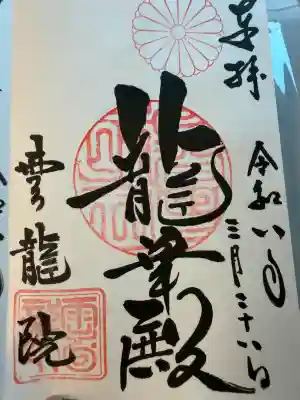 奉拝
令和八年
三月二十八日
龍華殿
雲龍院